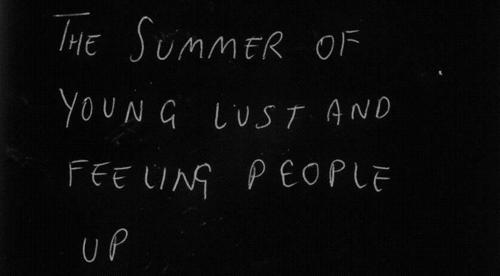 THE SUMMER OF
YOUNG LUST AND
FEELING PEOPLE
UP